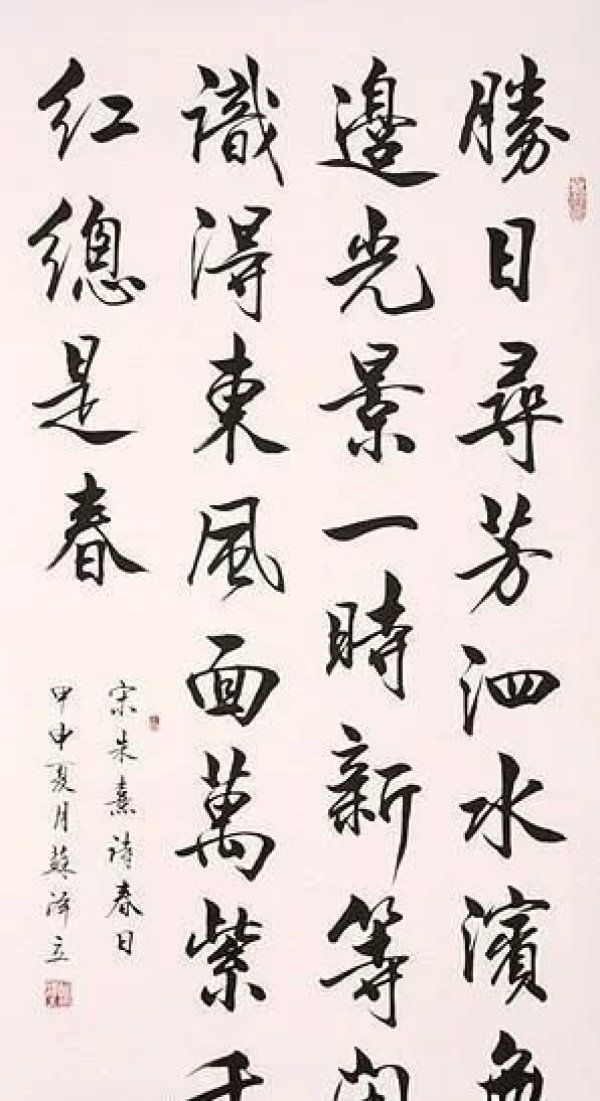 勝日尋芳泗水濱無
邊光景一時新等閑
識得東風面萬紫千
紅總是春
宋朱熹詩春日
甲申夏月蘇澤立